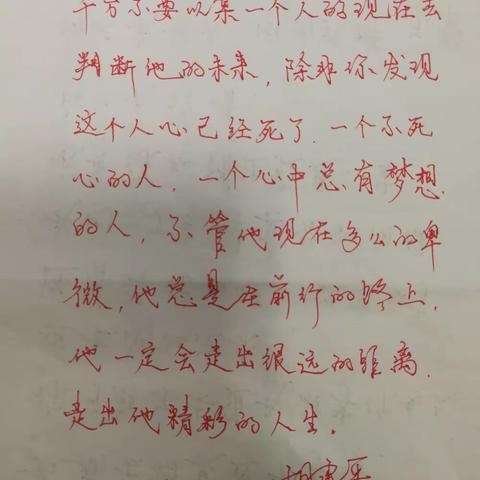 千万不要以某一个人的现在去
判断他的未来，除非你发现
这个人心已经死了．一个不死
心的人．一个心中总有梦想．
的人，不管他现在多么的卑
微，他总是在前行的路上，
他一定会走出很远的距离．
走出他精彩的人生．